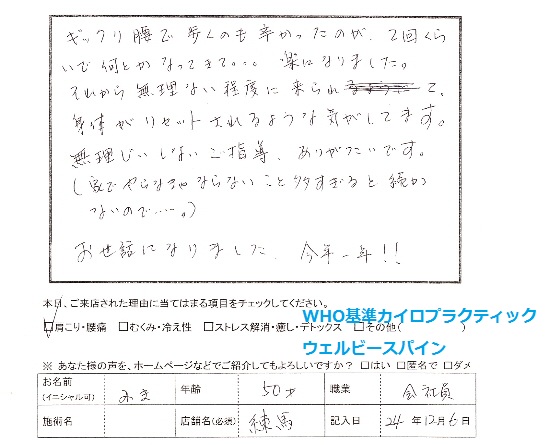 ギックリ腰で歩くのも辛かったのが、2回くら
いで何とかなってきて…。楽になりました。
それから無理ない程度に来られて、
身体がリセットされるような気がしてます。
無理じいしないご指導、ありがたいです。
(家でやらなきゃならないこと多すぎると続か
ないので…。)
お世話になりました、今年一年!!
本日、ご来店された理由に当てはまる項目をチェックしてください。
☑肩こり・腰痛 □むくみ・冷え性 □ストレス解消・癒し・デトックス □その他( )
WHO基準カイロプラクティック
ウェルビースパイン
※ あなた様の声を、ホームページなどでご紹介してもよろしいですか？ □はい □匿名で □ダメ
お名前 (イニシャル可) 年齢 50才 職業 会社員
施術名 店舗名(必須) 練馬 記入日 24年12月6日